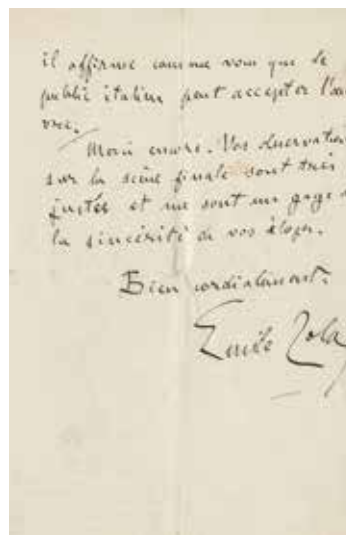 il affirme comme vous que le
public italien peut accepter l'œu
vre.
Merci encore. Vos observation
sur la scène finale sont très
justes et me sont un gage d
la sincérité de vos éloges.
Bien cordialement.
Emile Zola